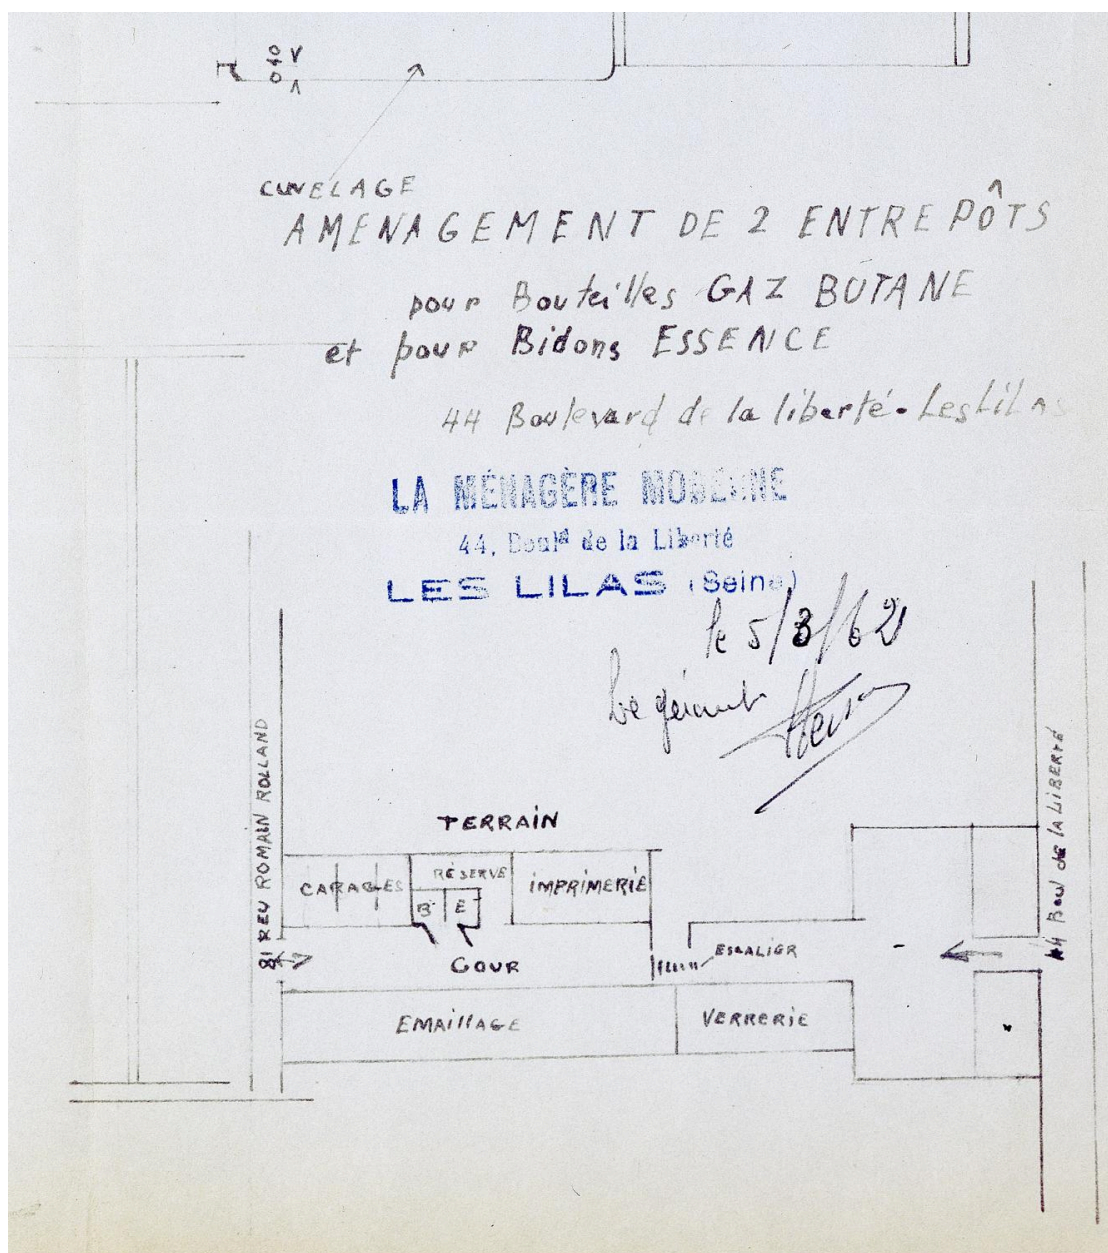 0.40
CUVELAGE
AMENAGEMENT DE 2 ENTREPÔTS
pour Bouteilles GAZ BUTANE
et pour Bidons ESSENCE
44 Boulevard de la liberté - Les Lilas
LA MÉNAGÈRE MODERNE
44, Boulᵈ de la Liberté
LES LILAS (Seine)
le 5/3/62
Le gérant
81 REU ROMAIN ROLLAND
44 Boul de la LIBERTÉ
TERRAIN
GARAGES
RÉSERVE
IMPRIMERIE
B
E
COUR
ESCALIER
EMAILLAGE
VERRERIE